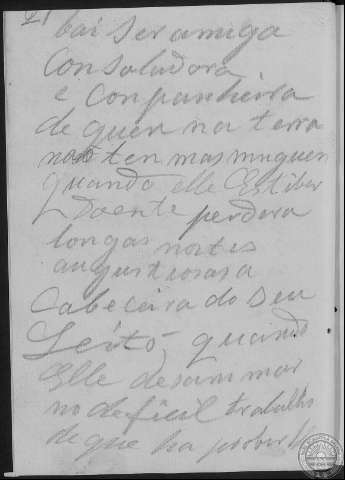 21
bai ser amiga
Consoladora
e Conpanheira
de quen na terra
não ten mas ninguen
quando elle Estiber
Doente perdera
longas noites
angustiosas a
Cabeceira do Seu
Leito, quando
Elle desanimar
no deficil trabalho
de que ha